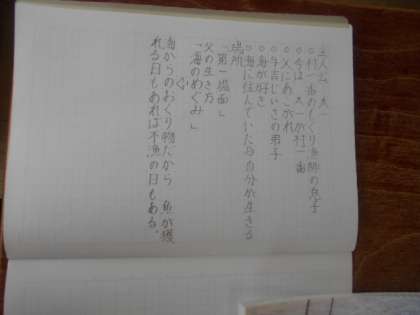 主人公　太一
○村一番のもぐり漁師の息子
○今は太一が村一番
○父にあこがれ
○与吉じいさの弟子
○海が好き
○海に住んでいた
場所
「第一場面」
父の生き方
「海のめぐみ」
海からのおくり物だから　魚が獲
れる日もあれば不漁の日もある。